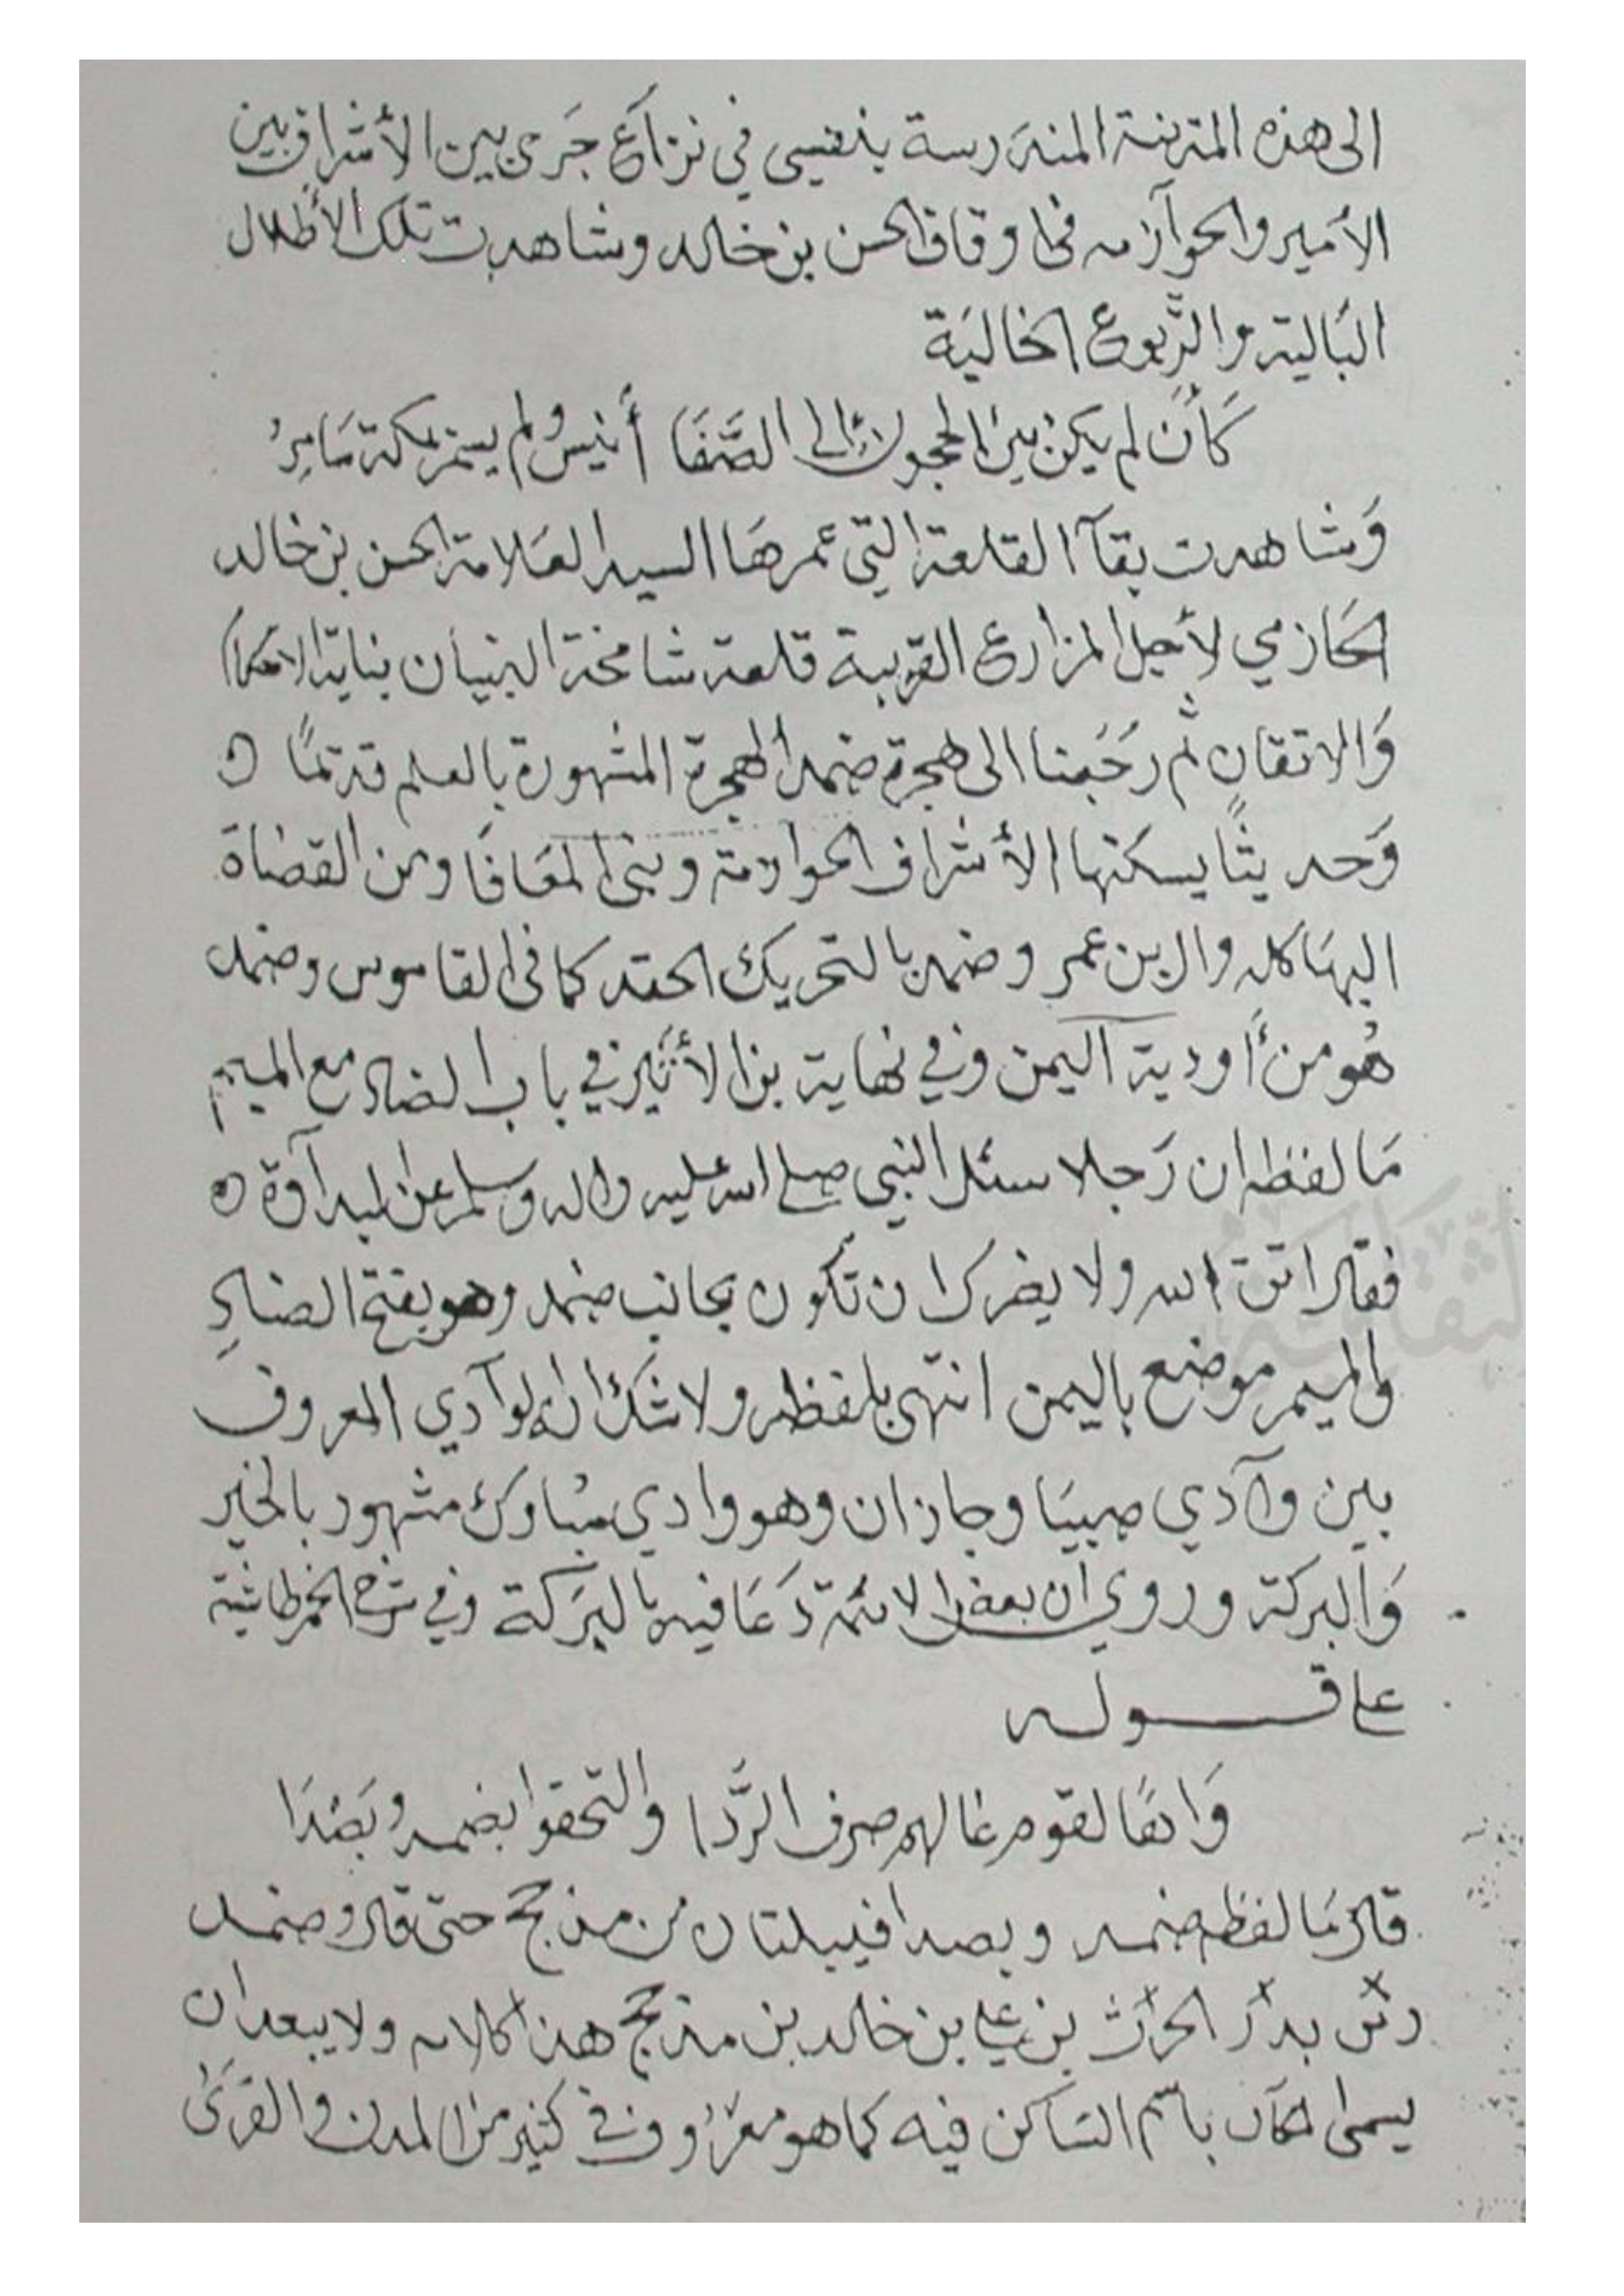 الى هذه المدينة المندرسة بنفسي في نزآع جَرى بين الأشراف بين
الأمير والحوآزمه في اوقاف الحسن بن خالد وشاهدت تلك الأطلال
البَالية والرُّبوع الخاليَة
كَأن لم يكن بين الحجون الى الصَّفَا أنيسٌ ولم يسمر بمكة سَامِرُ
وَشاهدت بقآ القلعة التي عمرهَا السيد العَلامة الحسن بن خالد
الحَازمي لأجل المزارع القريبة قلعة شامخة البنيان بناية الاحكام
وَالاتقان ثم رجَعنا الى هجرة ضمد الهجرة المشهورة بالعلم قديمًا
وَحديثًا يسكنها الأشراف الحوازمة وبنى المعَافَا ومن القضاة
البهَاكله وال بن عمر وضمد بالتحريك الحقد كما في القاموس وضمد
هُو من أودية اليمن وفي نهاية بن الأثير في باب الضاد مع الميم
مَا لفظه ان رَجلا سئل النبي صلى الله عليه واله وسلم عن البدآوة
فقال اتق الله ولا يضرك ان تكون بجانب ضمد وهو بفتح الضادِ
والميم موضع باليمن انتهى بلفظه ولا شك ان الوآدي المعروف
بين وآدي صبيَا وجازان وهو وادي مبُارك مشهور بالخير
وَالبركة وروي ان بعض الائمة دَعَا فيه بالبَركة وفي شرح الخمرطاشية
على قـــولــه
وَايمًا لقوم غالهم صرف الرَّدا والتحقوا بضمد وبَصَدَا
قال مَا لفظه ضمد وبصدا قبيلتان من مذحج حتى قال وضمد
بدر الحرث بن علي بن خالد بن مذحج هذا كلامه ولا يبعد ان
يسمى المكان باسم السَاكن فيه كما هو معروف في كثير من المدن والقرَىٰ